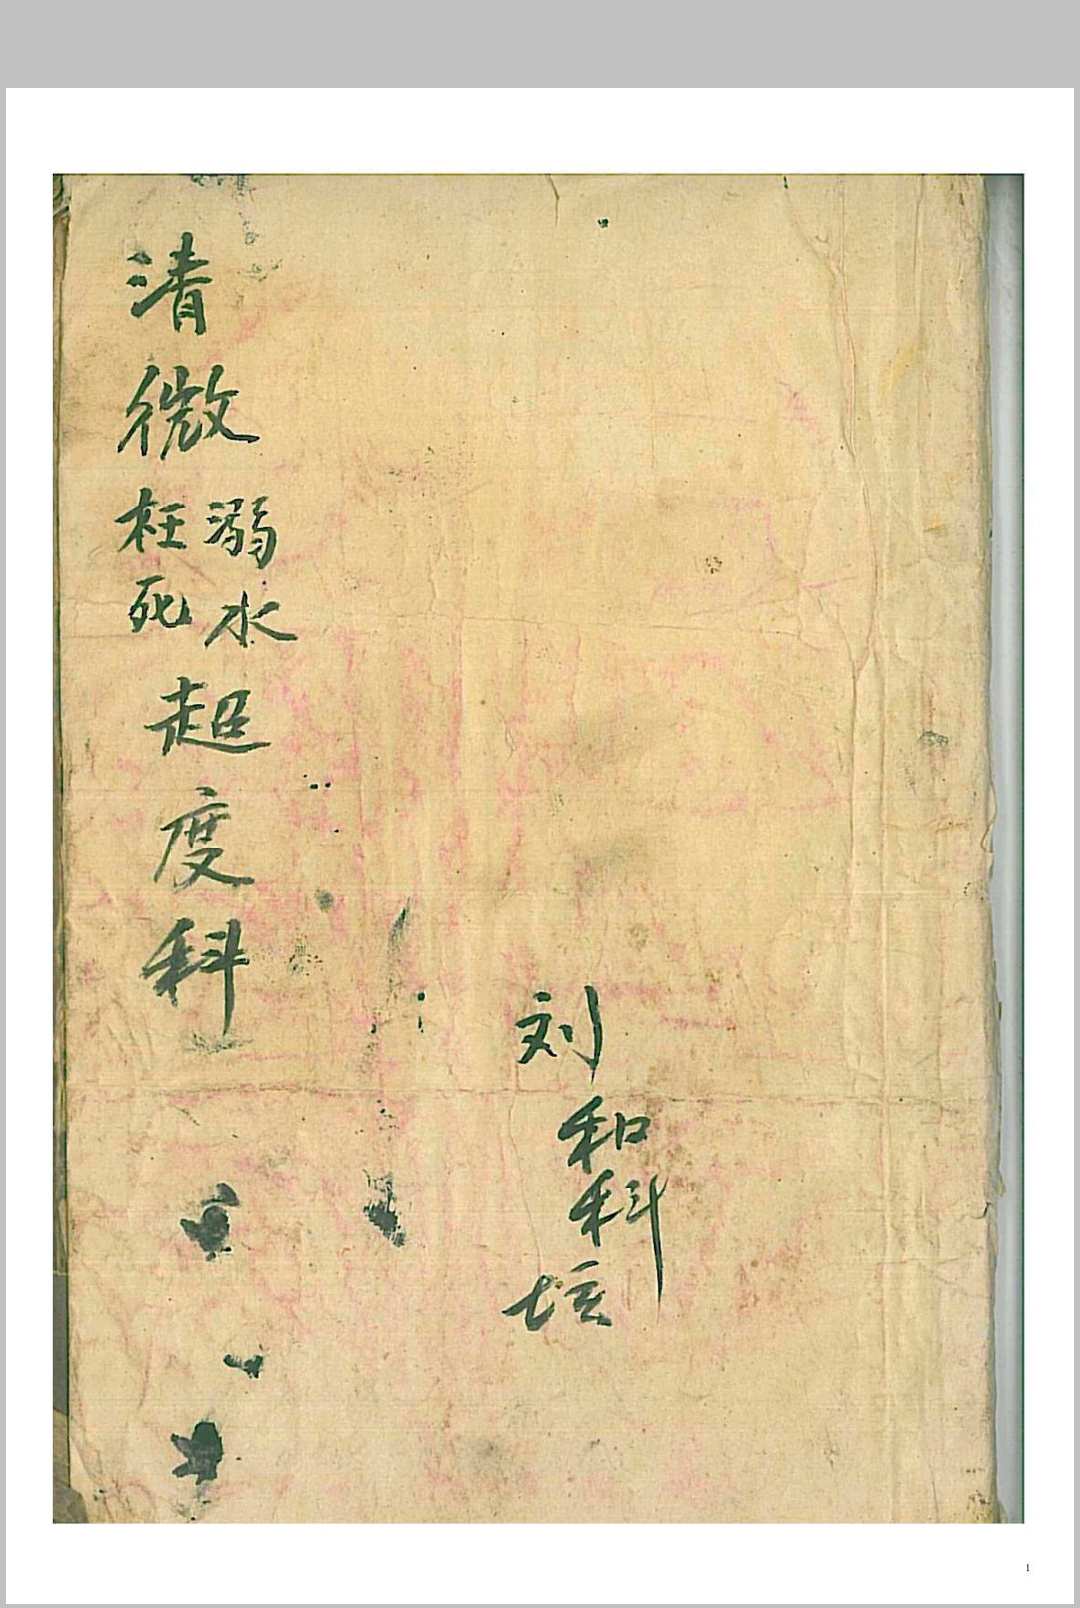 清微溺水枉死超度科
刘和科
1